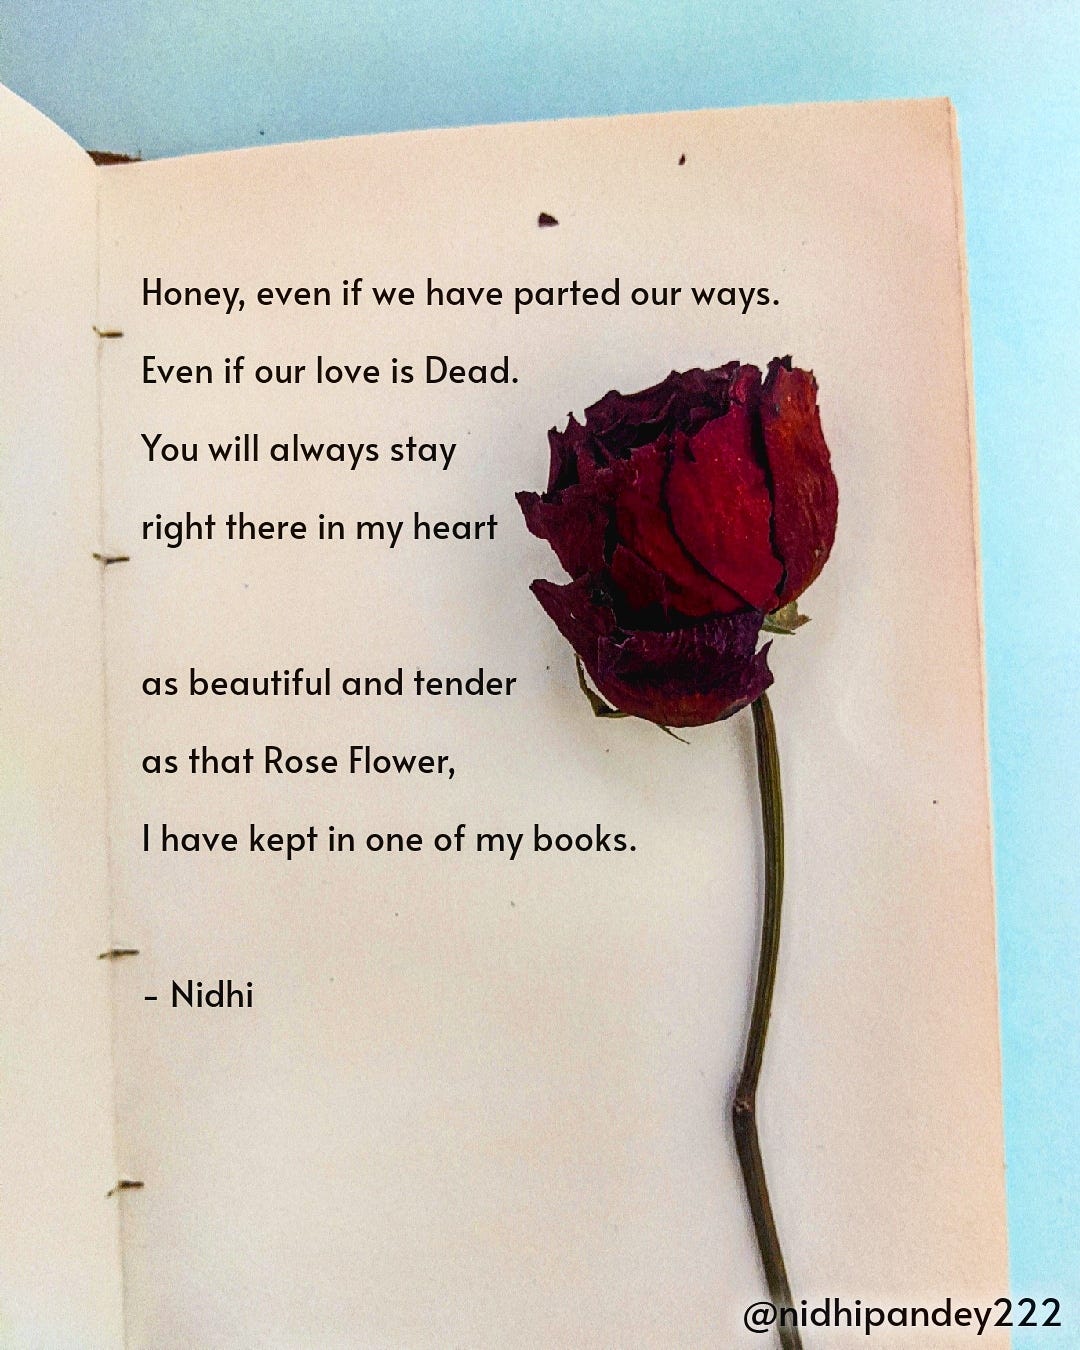 Honey, even if we have parted our ways.
Even if our love is Dead.
You will always stay
right there in my heart
as beautiful and tender
as that Rose Flower,
I have kept in one of my books.
- Nidhi
@nidhipandey222